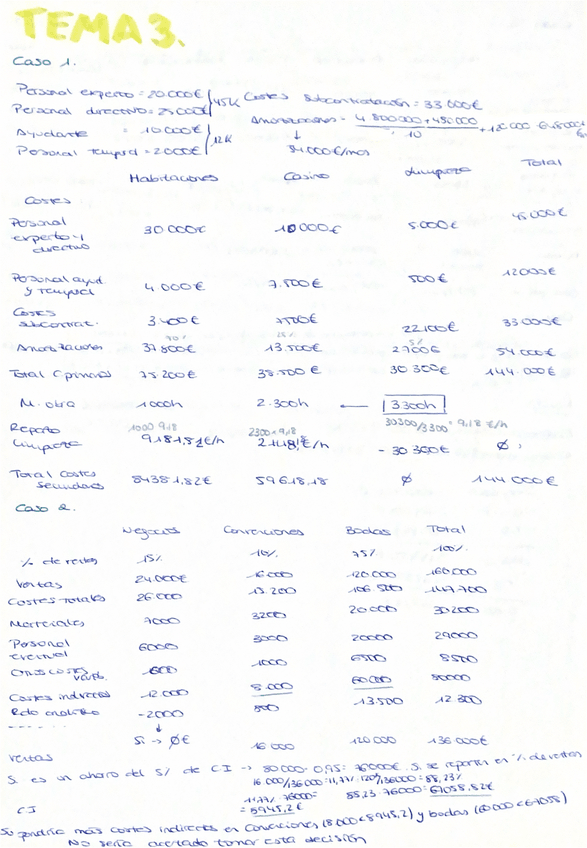 TEMA 3.
Caso 1.
Personal experto = 20000€ Costes subcontratación = 33 000€
Personal directivo = 25000€ 45k Amortizaciones = 4 800 000 + 480 000
Ayudante = 10 000€ 10
Personal temporal = 2000€ 12k 54.000€/mes
Habitaciones Casino Limpieza Total
Costes:
Personal experto y directivo 30 000€ 10 000€ 5.000€ 45 000€
Personal ayud. y temporal 4 000€ 7.500€ 500€ 12000€
Costes subcontrat. 3 400€ 7500€ 22.100€ 33 000€
70% 25% 5%
Amortizaciones 37 800€ 13.500€ 2700€ 54 000€
Total C. primarios 75 200€ 38.500€ 30 300€ 144.000€
M. obra 1000h 2.300h ← 3300h
1000 · 9,18 2300 · 9,18 30300/3300 = 9,18 €/h
Reparto limpieza - 30 300€ Ø
Total Costes Secundarios 84381,82€ 59618,18 Ø 144 000€
Caso 2.
Negocios Convenciones Bodas Total
% de ventas 15% 10% 75% 100%
Ventas 24.000€ 16000 120 000 160.000
Costes totales 26 000 15.200 106.500 147.700
Materiales 7000 3200 20 000 30200
Personal eventual 6000 3000 20000 29000
Otros costes variab. 1000 6500 8500
Costes indirectos 12 000 8.000 60.000 80000
Rdo analítico -2000 800 13.500 12 300
Si → Ø€
Ventas 16 000 120 000 136 000€
Si es un ahorro del 5% de CI → 80000 · 0,95 = 76000€. Si se reparten en % de ventas
16.000/136000 = 11,77% 120/136000 = 88,23%
CI 11,77% · 76000 = 8945,2€ 88,23 · 76000 = 67058,82€
Supondría más costes indirectos en Convenciones (8 000 < 8945,2) y bodas (60 000 < 67058)
No sería acertado tomar esta decisión